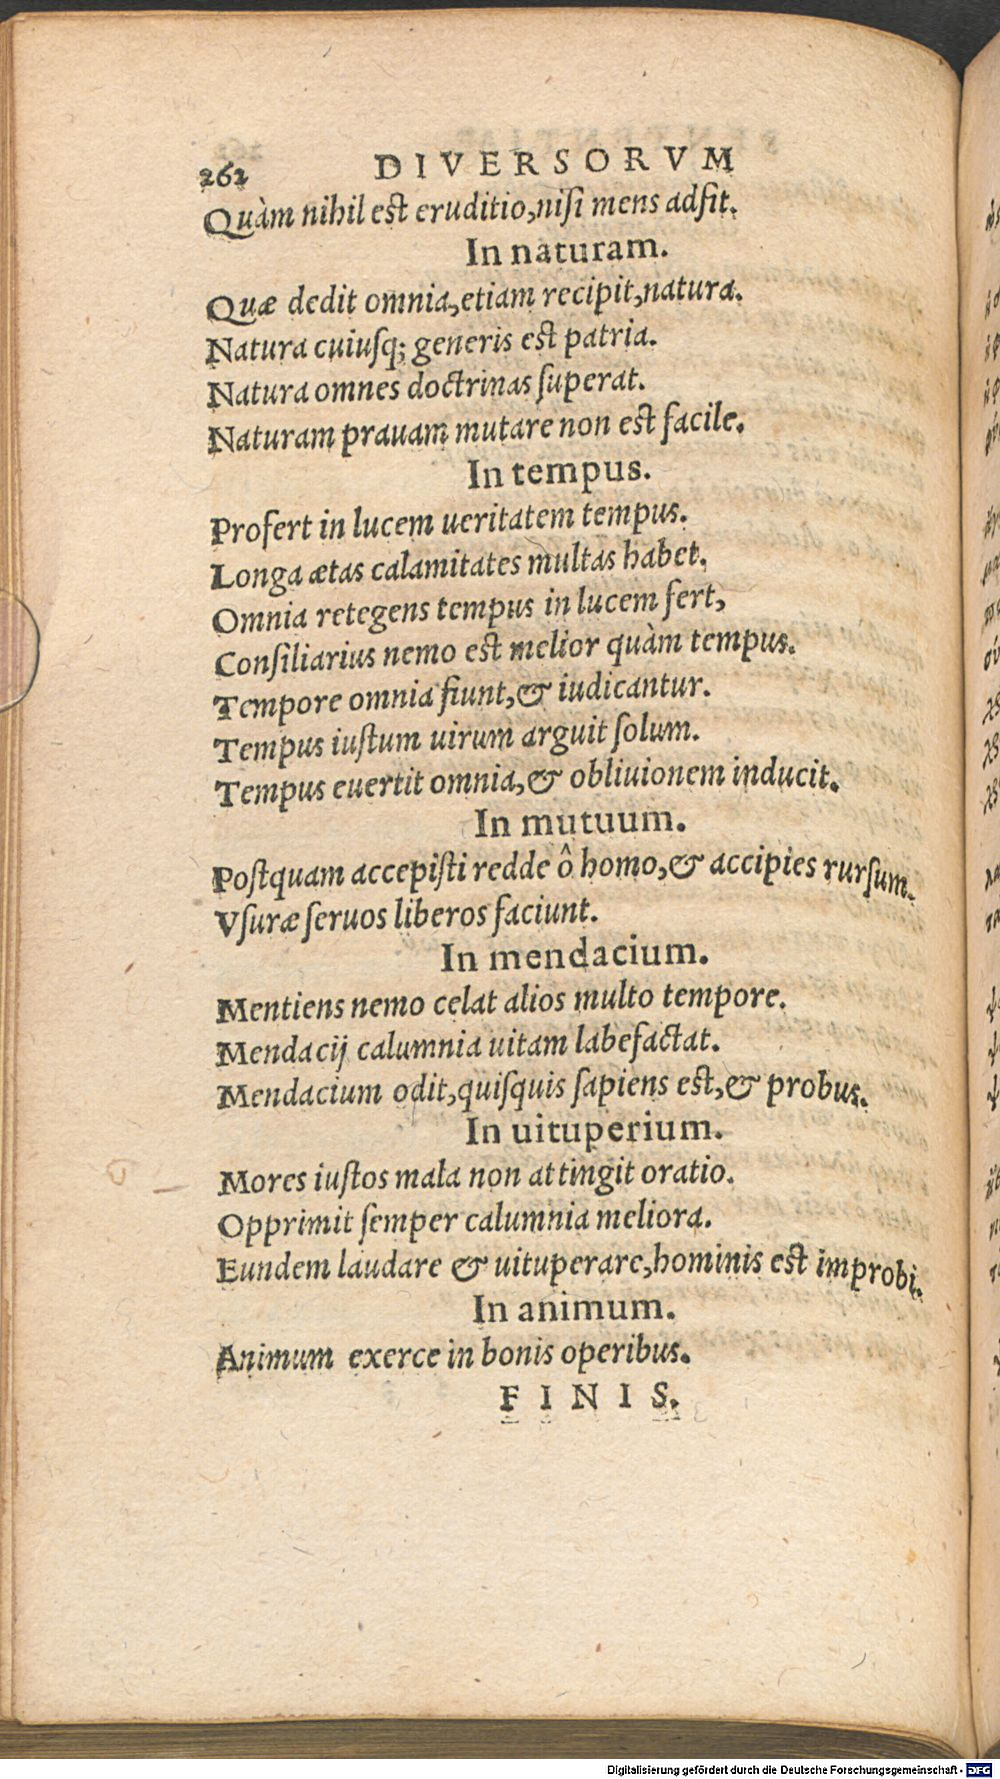 262 DIVERSORVM
Quàm nihil est eruditio, nisi mens adſit.
In naturam.
Quæ dedit omnia, etiam recipit, natura.
Natura cuiuſq; generis est patria.
Natura omnes doctrinas ſuperat.
Naturam prauam mutare non est facile.
In tempus.
Profert in lucem ueritatem tempus.
Longa ætas calamitates multas habet.
Omnia retegens tempus in lucem fert,
Conſiliarius nemo est melior quàm tempus.
Tempore omnia fiunt, & iudicantur.
Tempus iuſtum uirum arguit ſolum.
Tempus euertit omnia, & obliuionem inducit.
In mutuum.
Poſtquam accepiſti redde ô homo, & accipies rurſum.
Vſuræ ſeruos liberos faciunt.
In mendacium.
Mentiens nemo celat alios multo tempore.
Mendacij calumnia uitam labefactat.
Mendacium odit, quiſquis ſapiens est, & probus.
In uituperium.
Mores iuſtos mala non attingit oratio.
Opprimit ſemper calumnia meliora.
Eundem laudare & uituperare, hominis est improbi.
In animum.
Animum exerce in bonis operibus.
FINIS.
Digitalisierung gefördert durch die Deutsche Forschungsgemeinschaft - DFG